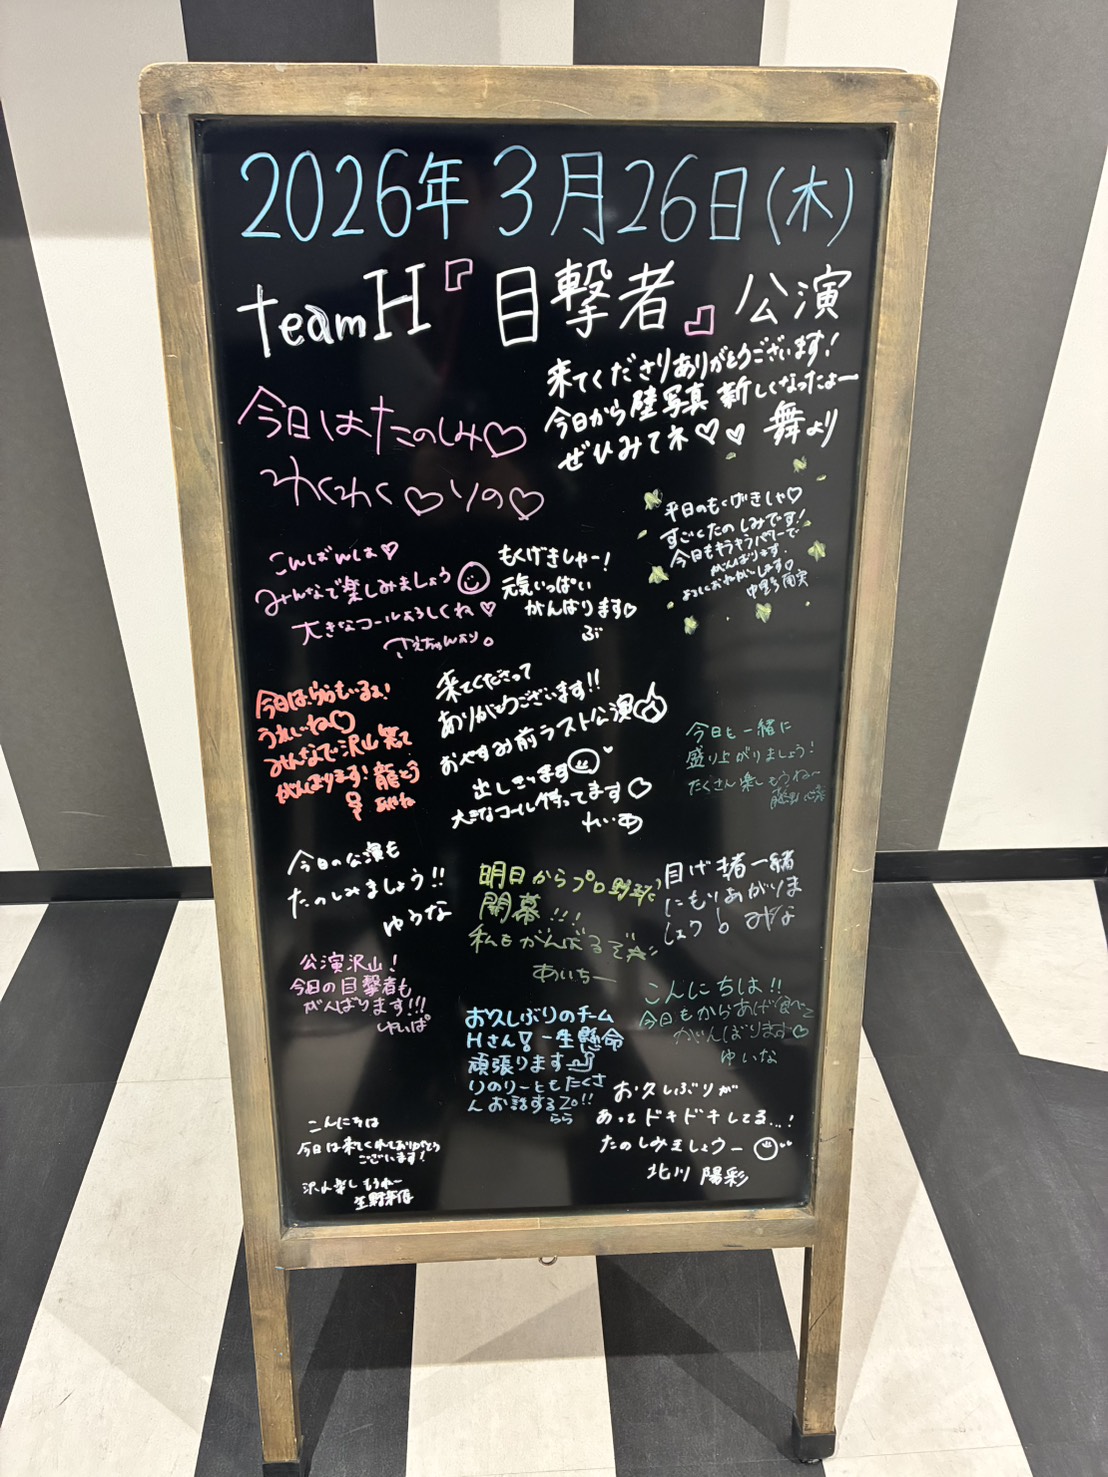 2026年3月26日(木)
teamH『目撃者』公演
来てくださりありがとうございます!
今日から壁写真新しくなったよー
ぜひみてネ♡♡ 舞より
今日はたのしみ♡
わくわく♡りの♡
平日のもくげきしゃ♡
すごくたのしみです!
今日もキラキラパワーで
がんばります.
よろしくおねがいします♡
こんばんは♡
みんなで楽しみましょう
大きなコールよろしくね♡
さえちゃんより。
もくげきしゃー!
元気いっぱい
がんばります♡
ぶ
今日はららもいるよ!
うれしいね♡
みんなで沢山笑って
がんばります!
来てくださって
ありがとうございます!!
おやすみ前ラスト公演
出しきります
大きなコール待ってます♡
れいあ
今日も一緒に
盛り上がりましょう!
たくさん楽しもうね〜
今日の公演も
たのしみましょう!!
ゆうな
明日からプロ野球
開幕!!!
私もがんばるぞ☆
あいちー
目げき者一緒
にもりあがりま
しょう! みな
公演沢山!
今日の目撃者も
がんばります!!!
しれいぱ
お久しぶりのチーム
Hさん!一生懸命
頑張ります
りのりーともたくさ
んお話するZo!!
らら
こんにちは!!
今日もからあげ食べて
がんばります♡
ゆいな
こんにちは
今日は来てくれてありがとう
ございます!
沢山楽しもうねー
お久しぶりが
あってドキドキしてる...!
たのしみましょうー
北川 陽彩